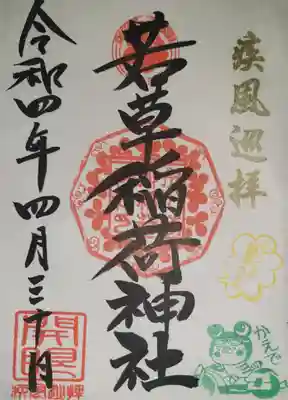 疾風巡拝
若草稲荷神社
令和四年四月三十日
かえで